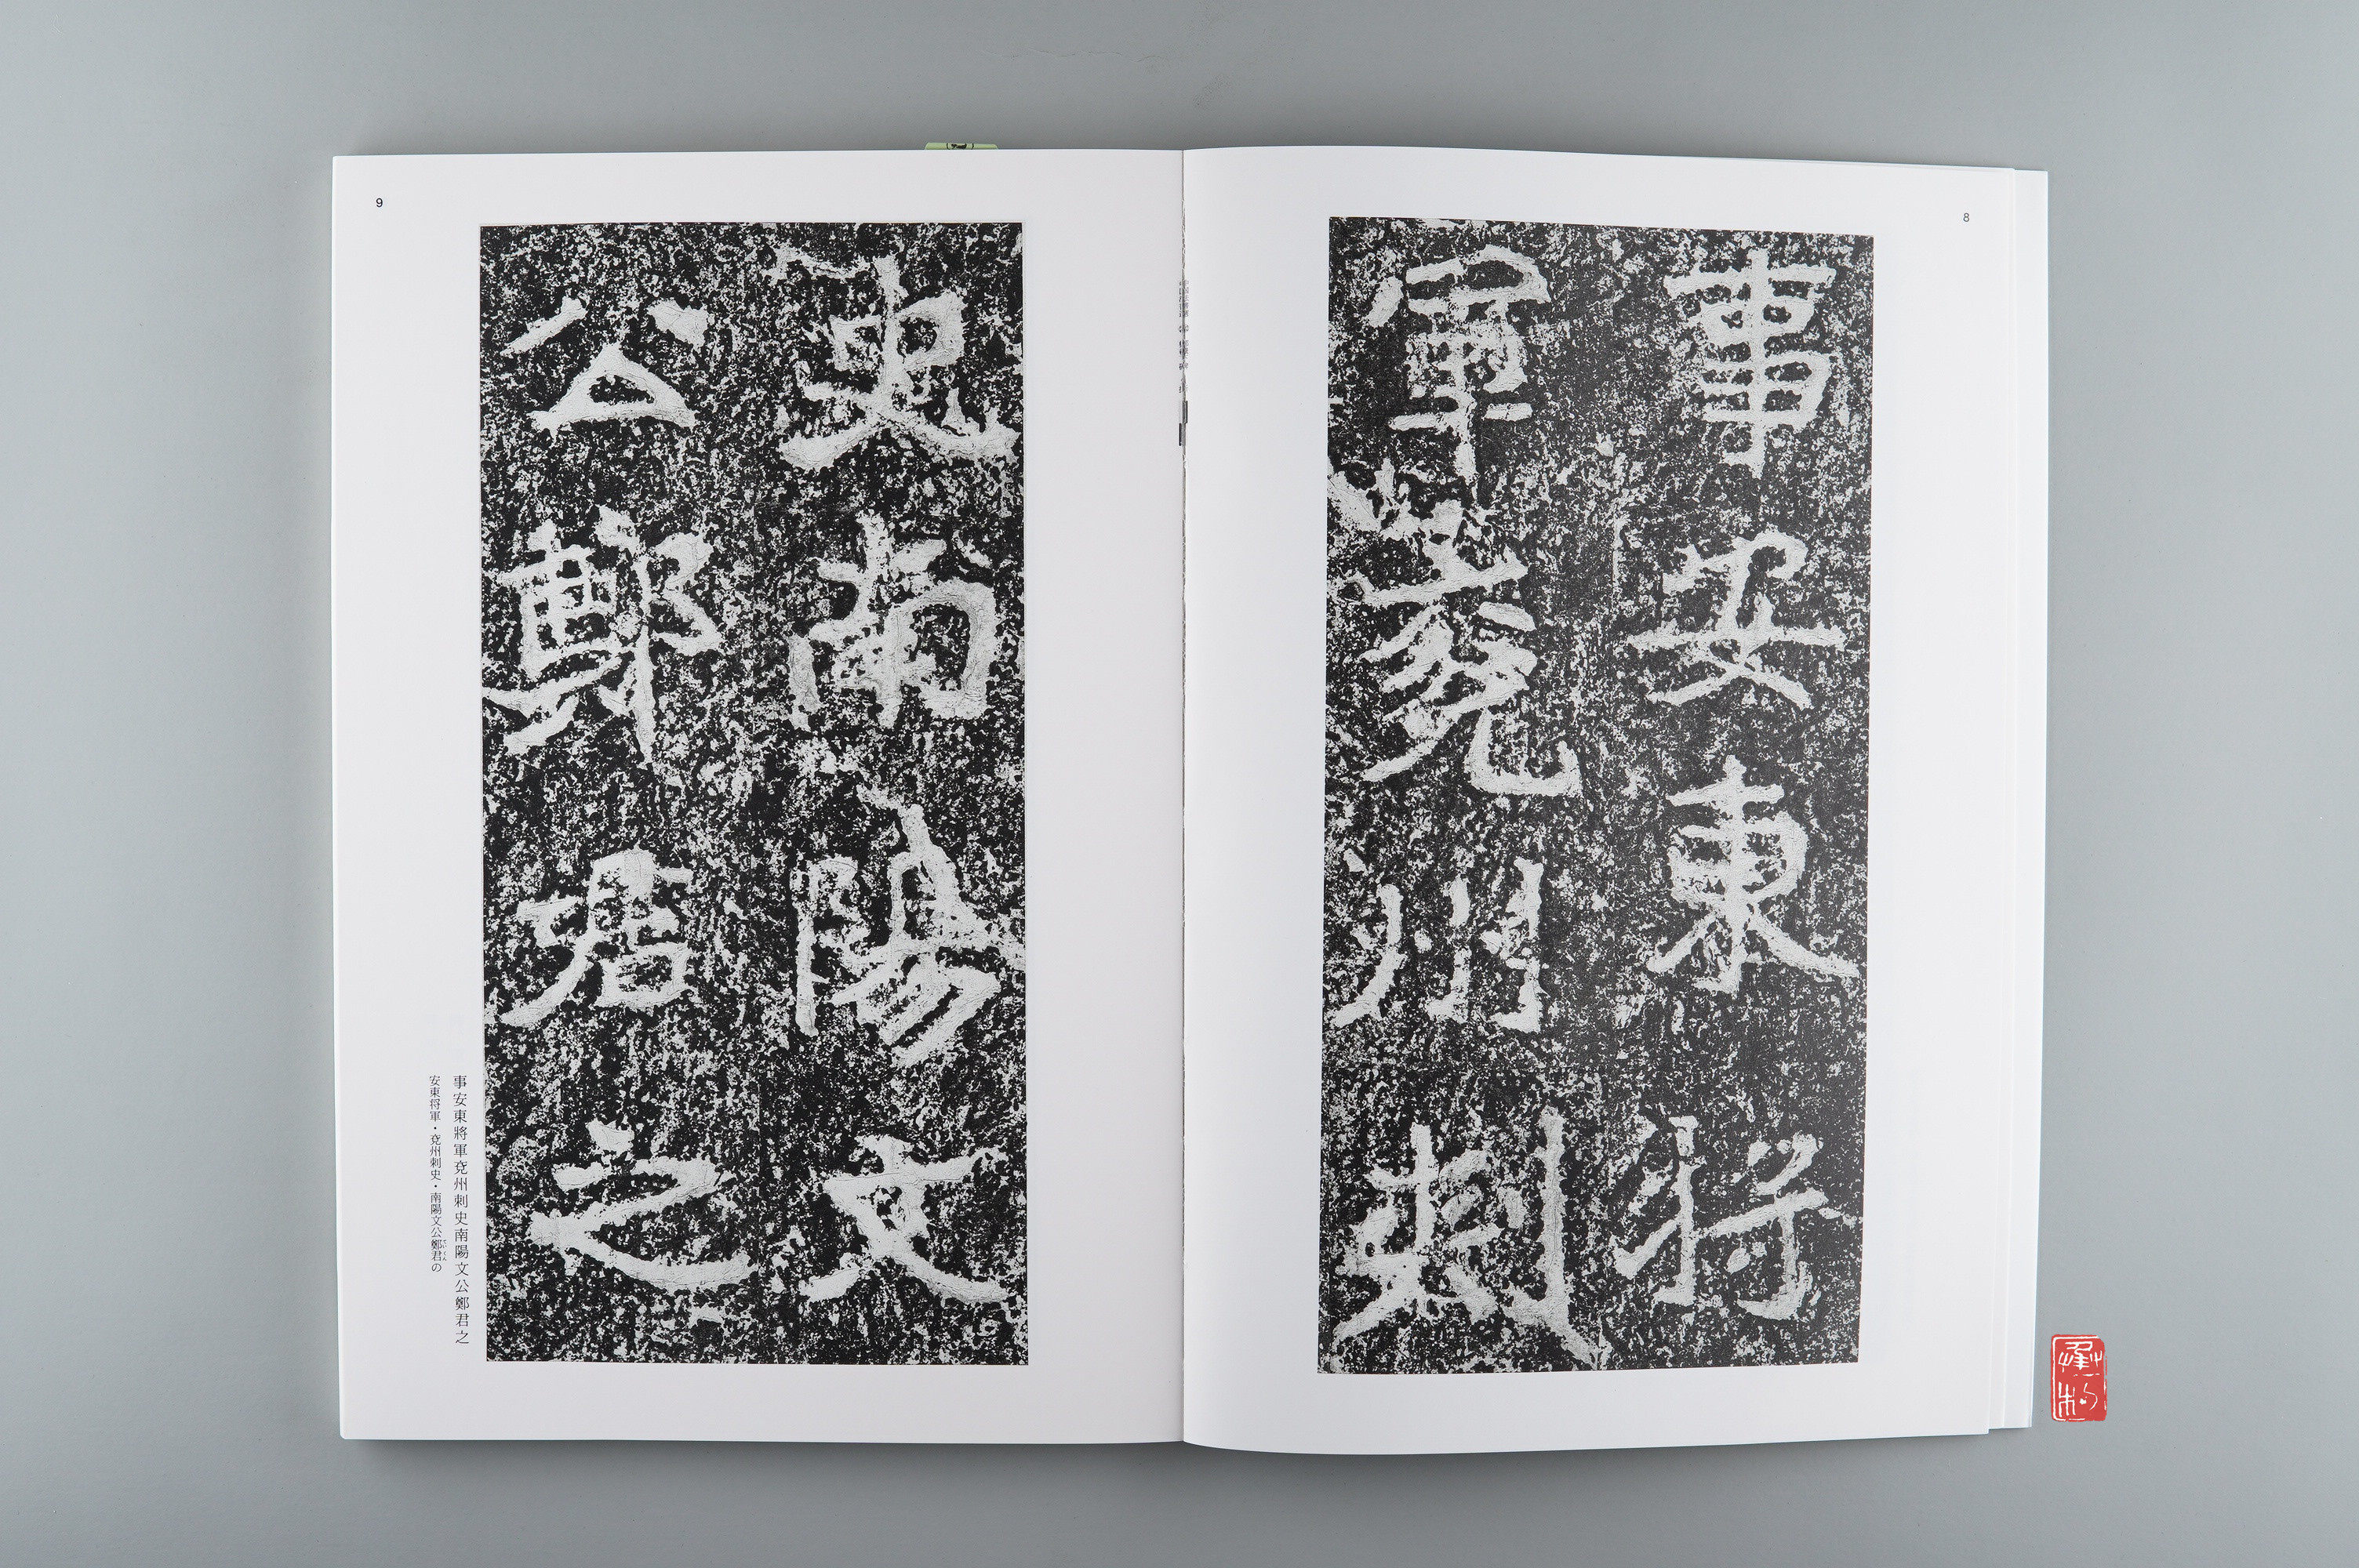 8
事安東将
軍兗州刾
9
史南陽文
公鄭君之
事安東將軍兗州刺史南陽文公鄭君之
安東将軍・兗州刺史・南陽文公鄭君の